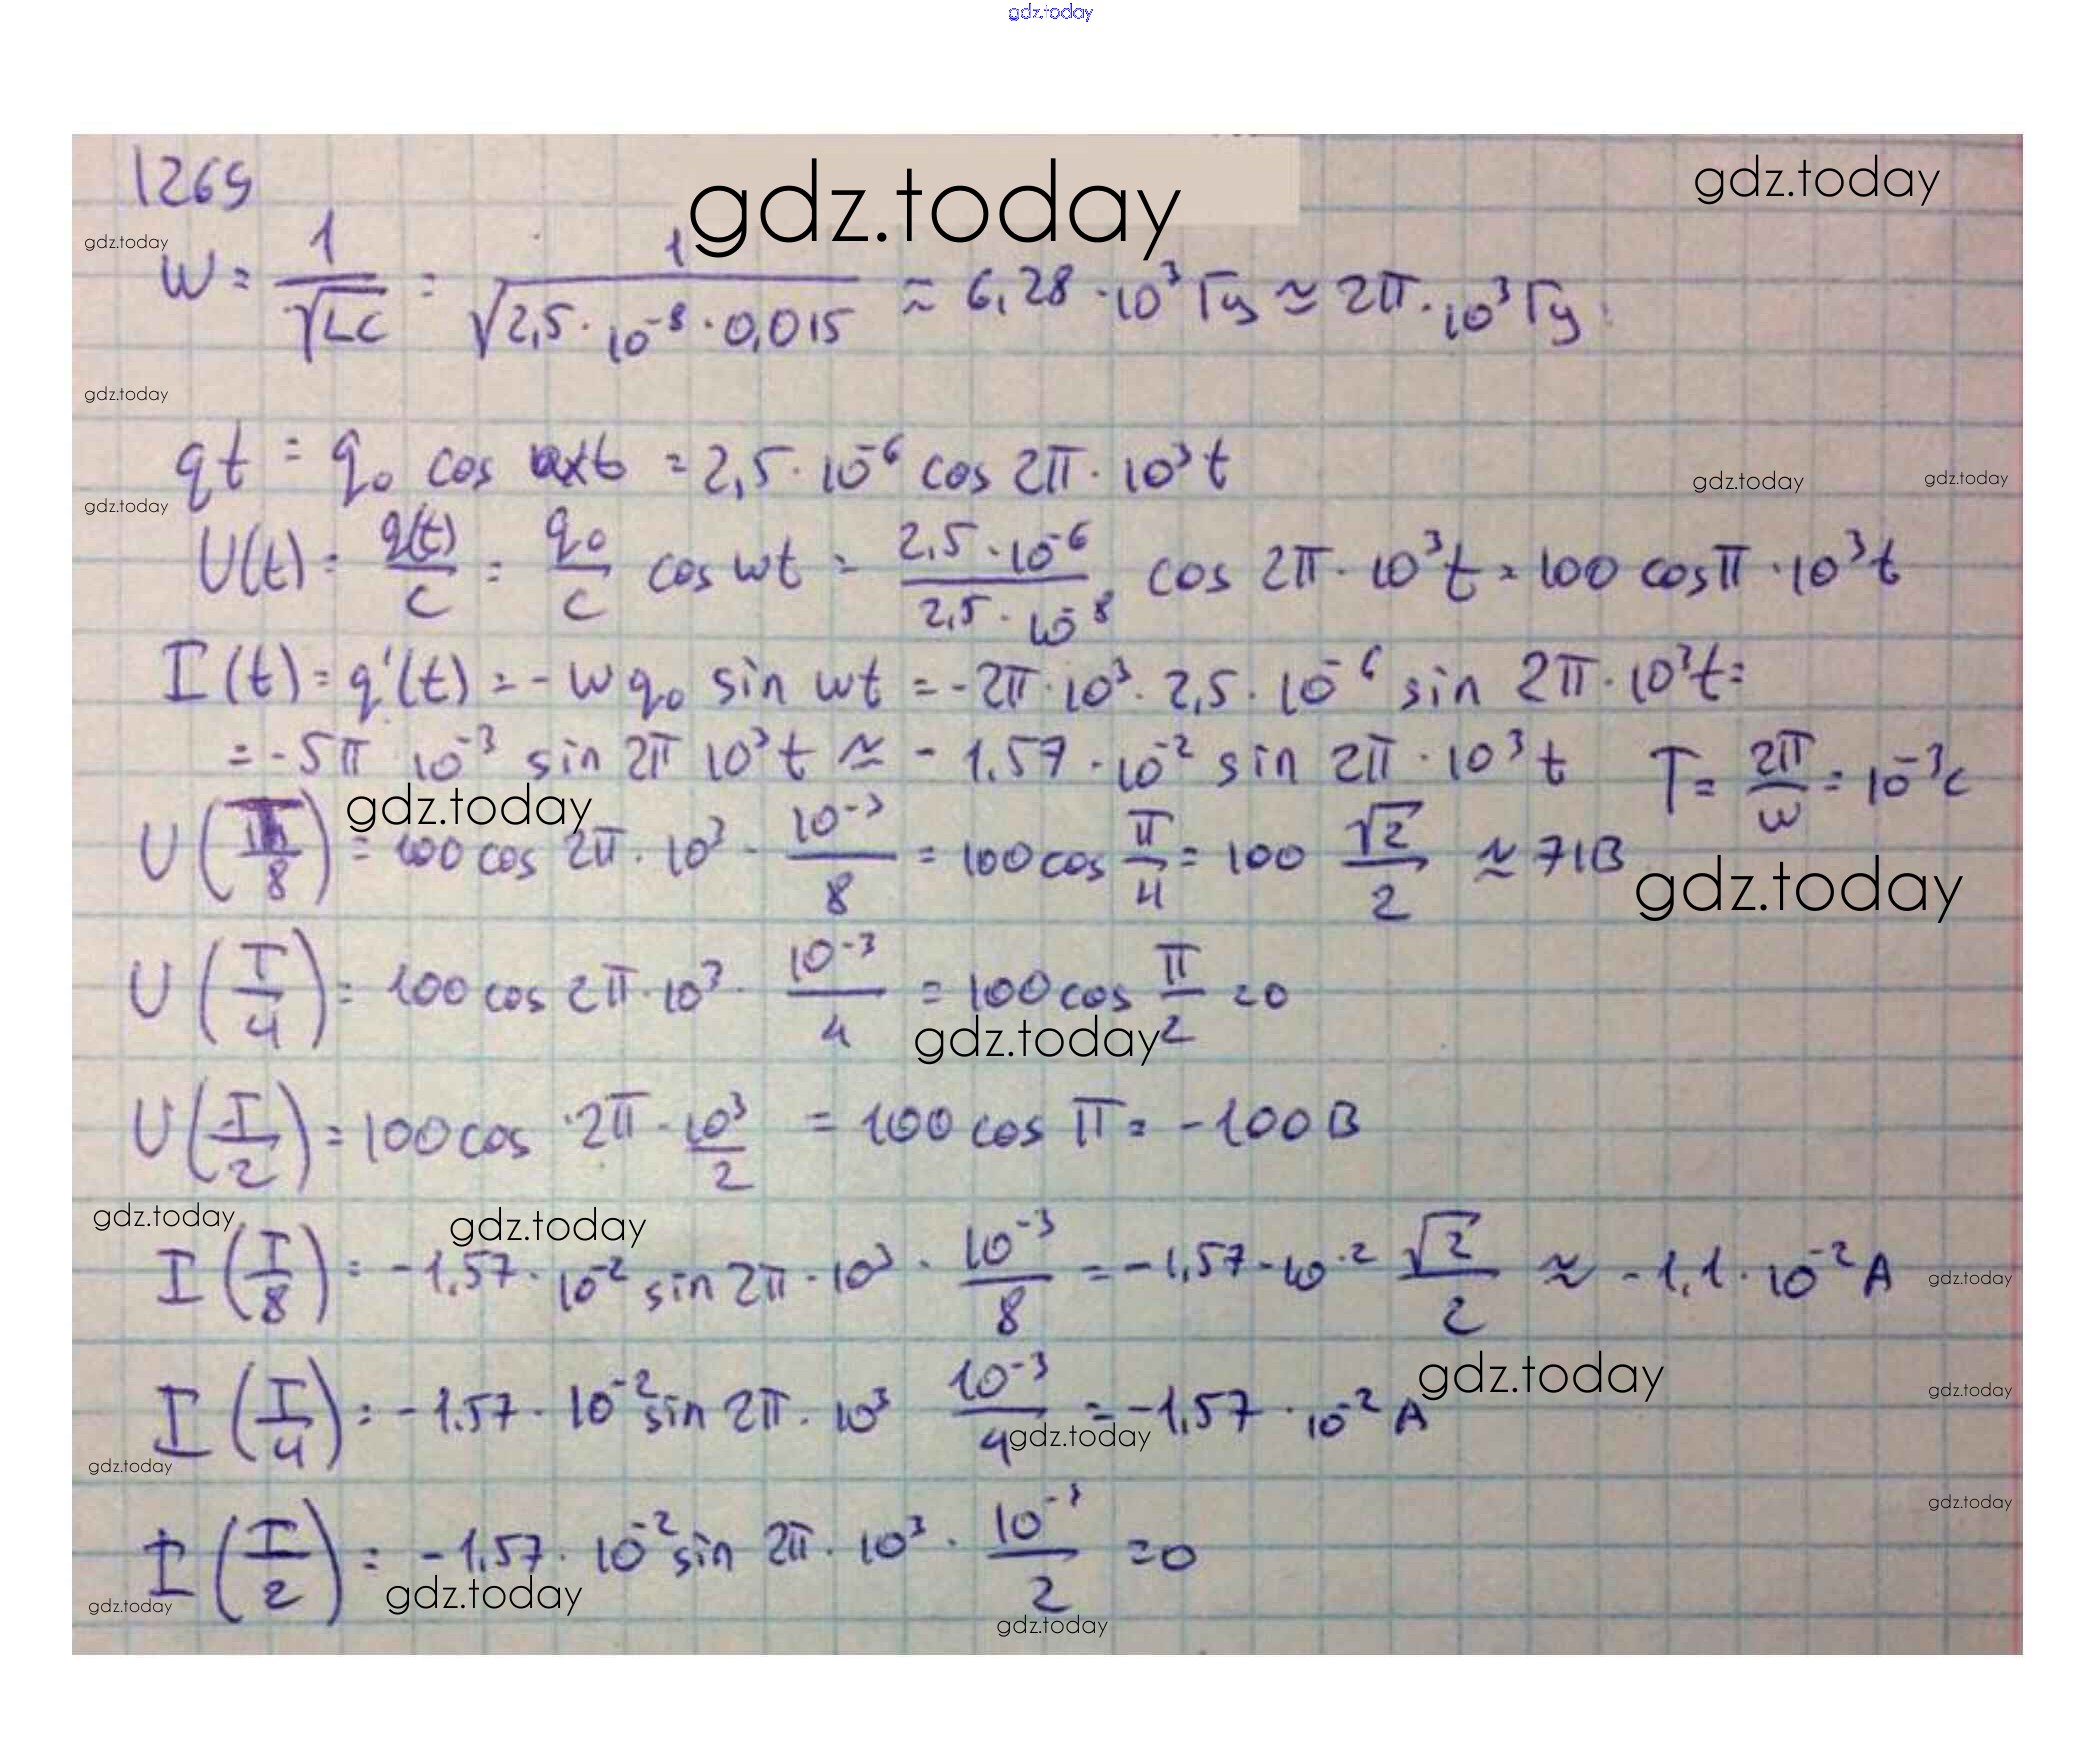 gdz.today
1269
gdz.today
gdz.today
gdz.today
W = 1/√LC = 1/√2,5 · 10⁻⁸ · 0,015 ≈ 6,28 · 10³ Гц ≈ 2π · 10³ Гц
gdz.today
qt = q₀ cos = 2,5 · 10⁻⁶ cos 2π · 10³ t
gdz.today
gdz.today
gdz.today
U(t) = q(t)/C = q₀/C cos wt = 2,5 · 10⁻⁶/2,5 · 10⁻⁸ cos 2π · 10³ t = 100 cos π · 10³ t
I(t) = q'(t) = - w q₀ sin wt = - 2π · 10³ · 2,5 · 10⁻⁶ sin 2π · 10³ t =
= - 5π · 10⁻³ sin 2π 10³ t ≈ - 1.57 · 10⁻² sin 2π · 10³ t T = 2π/w = 10⁻³ c
gdz.today
U(T/8) = 100 cos 2π · 10³ · 10⁻³/8 = 100 cos π/4 = 100 √2/2 ≈ 71В
gdz.today
U(T/4) = 100 cos 2π · 10³ · 10⁻³/4 = 100 cos π/2 = 0
gdz.today
U(T/2) = 100 cos · 2π · 10³/2 = 100 cos π = - 100 В
gdz.today
gdz.today
I(T/8) = - 1,57 · 10⁻² sin 2π · 10³ · 10⁻³/8 = - 1,57 · 10⁻² √2/2 ≈ - 1,1 · 10⁻² А
gdz.today
gdz.today
gdz.today
I(T/4) = - 1.57 · 10⁻² sin 2π · 10³ 10⁻³/4 = - 1,57 · 10⁻² А
gdz.today
gdz.today
gdz.today
I(T/2) = - 1,57 · 10⁻² sin 2π · 10³ · 10⁻³/2 = 0
gdz.today
gdz.today
gdz.today